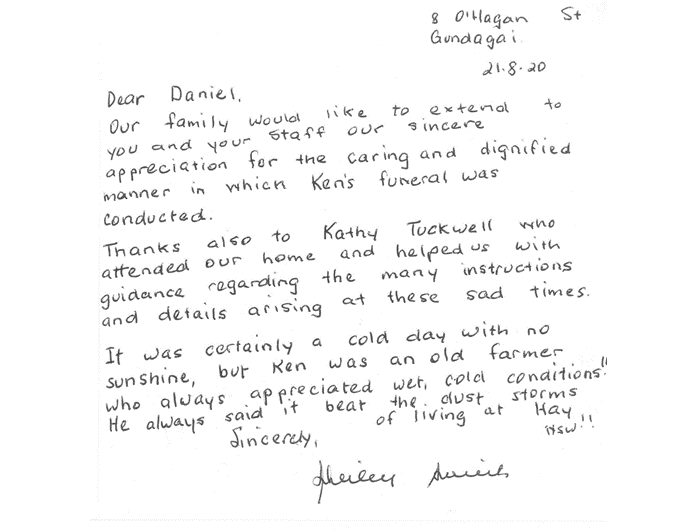 8 O'Hagan St
Gundagai.
21.8.20
Dear Daniel,
Our family would like to extend to
you and your staff our sincere
appreciation for the caring and dignified
manner in which Ken's funeral was
conducted.
Thanks also to Kathy Tuckwell who
attended our home and helped us with
guidance regarding the many instructions
and details arising at these sad times.
It was certainly a cold day with no
sunshine, but Ken was an old farmer
who always appreciated wet, cold conditions!!
He always said it beat the dust storms
of living at Hay
NSW!!
Sincerely,